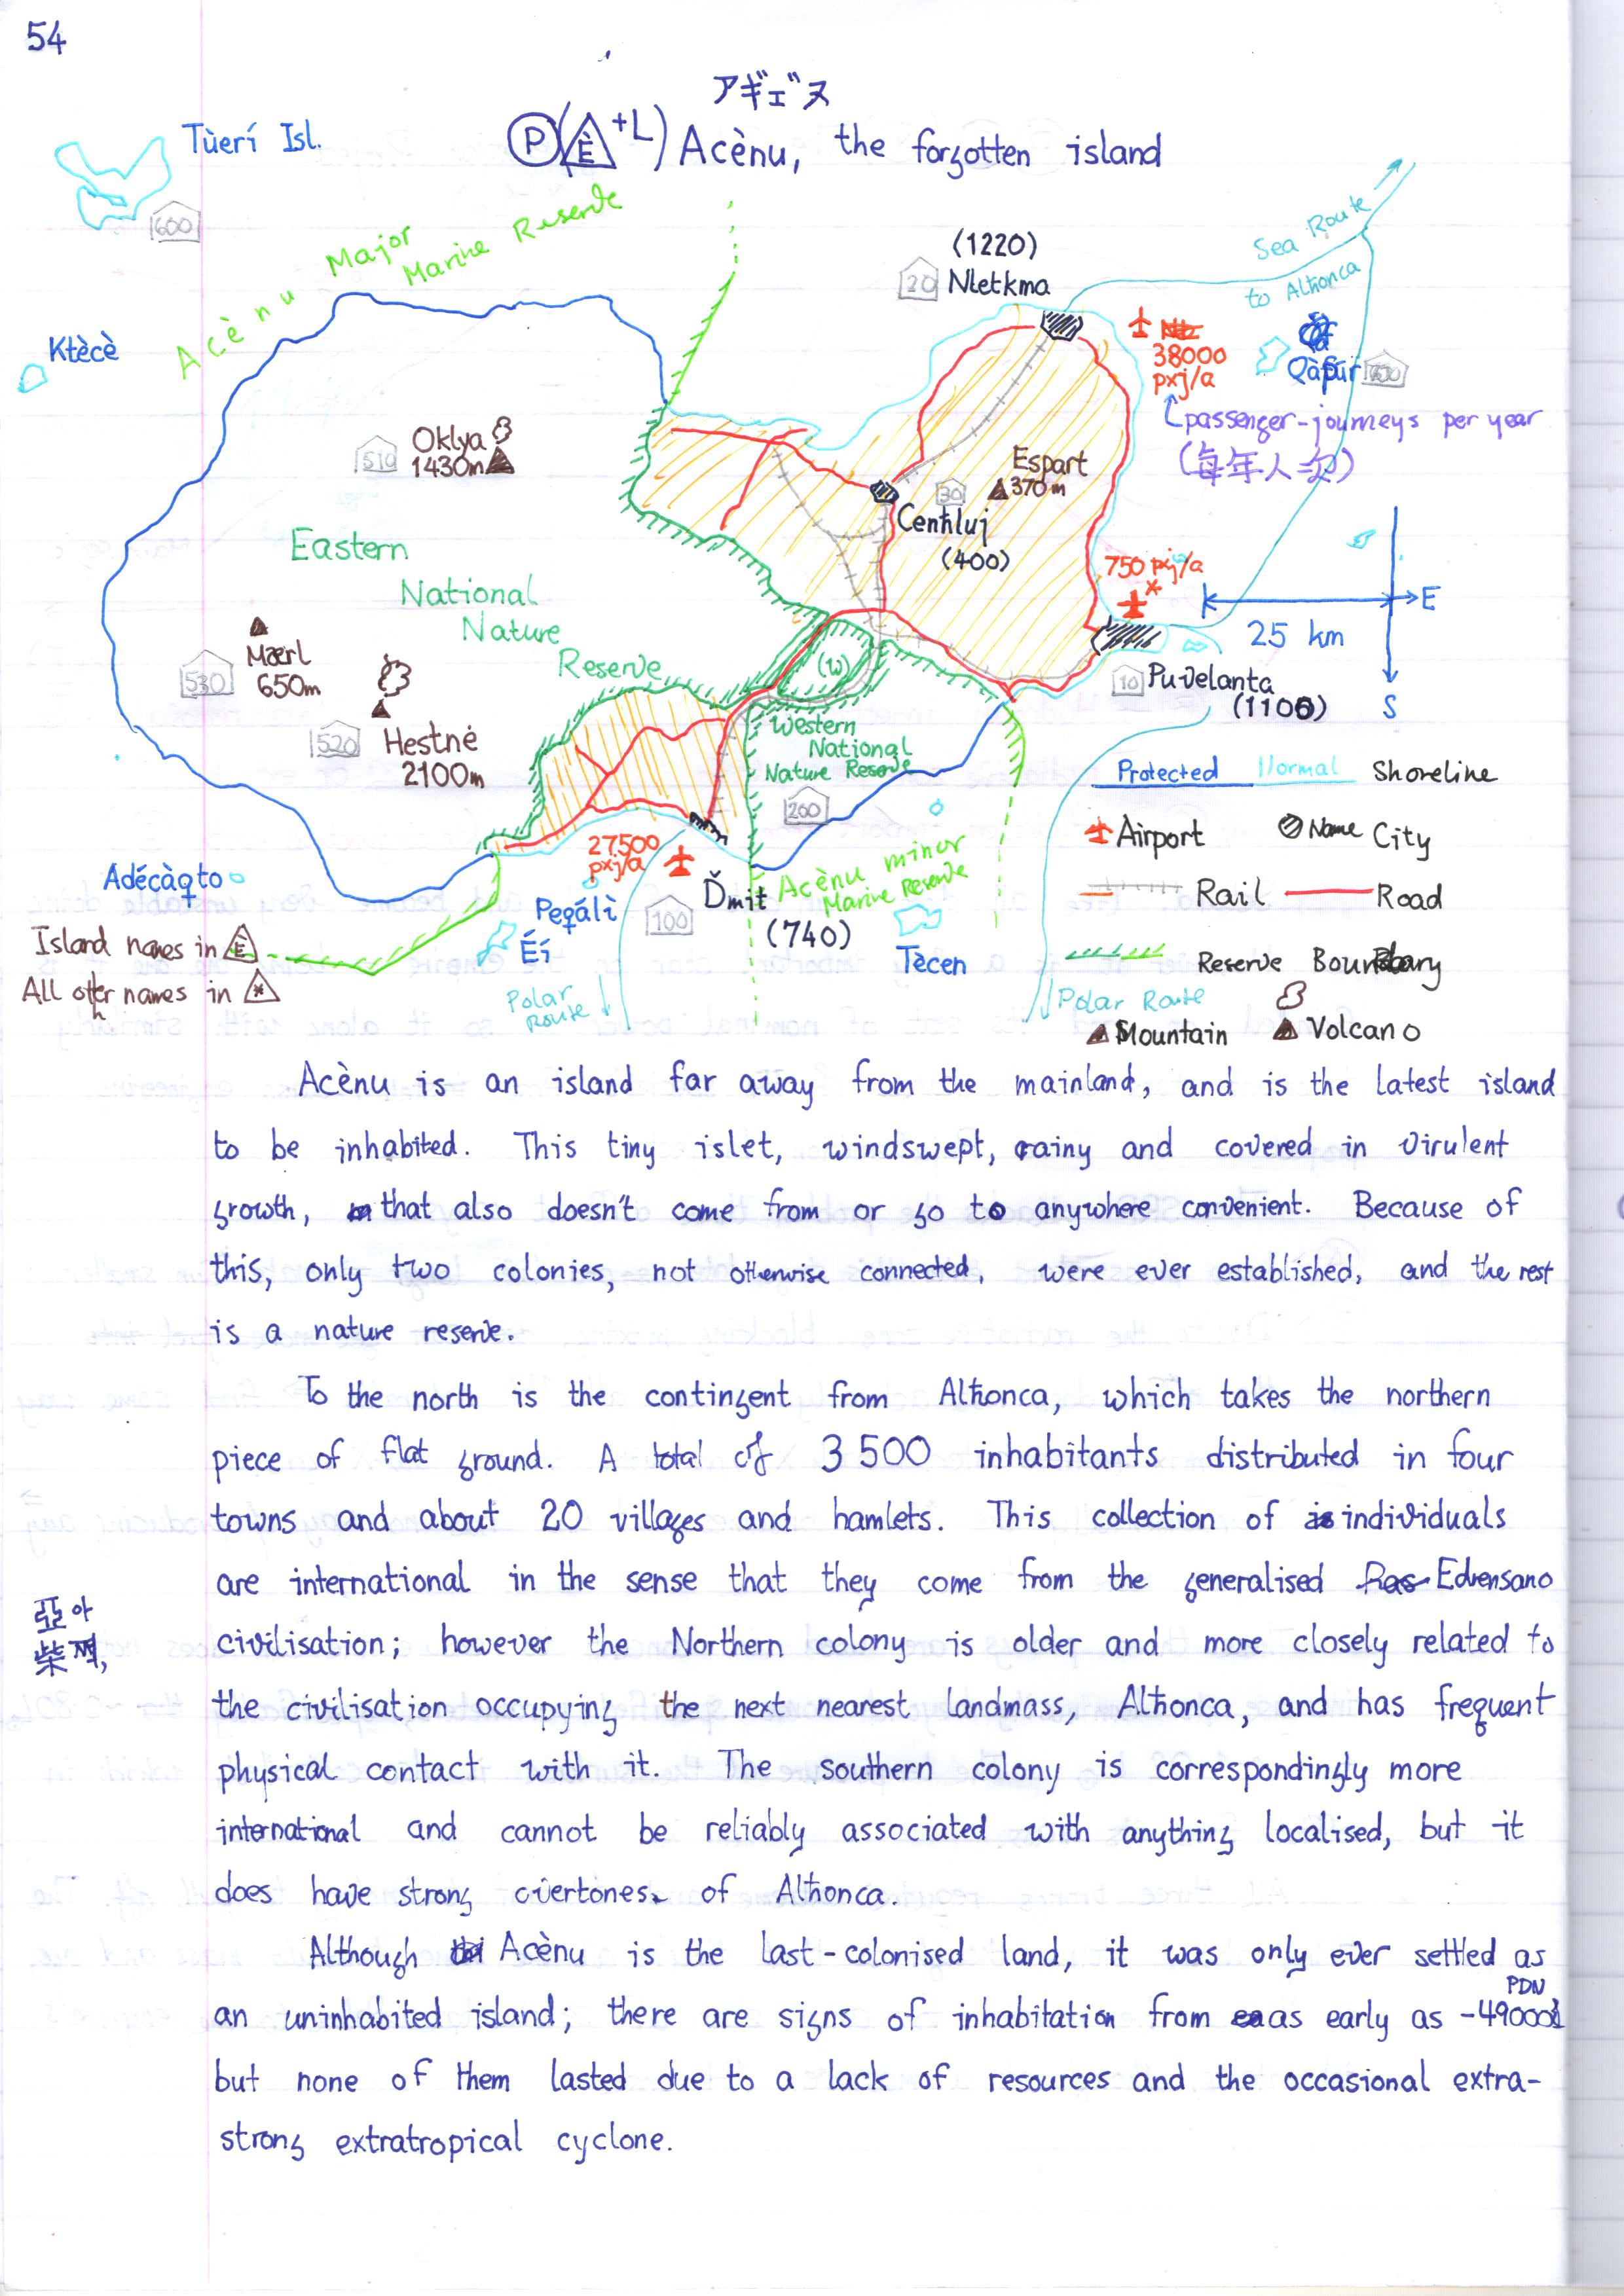 54
アギェヌ
Tùerí Isl.
P (È +L) Acènu, the forgotten island
600
Acènu Major Marine Reserve
Sea Route
to Alħonca
(1220)
20 Nletkma
Ktècè
38000
pxj/a
Qàpúr
passenger-journeys per year
(每年人次)
510 Oklya
1430m
Espart
370m
30
Cenħluj
(400)
750 pxj/a
Eastern
National
Nature
Reserve
E
25 km
S
(W)
Mærl
650m
530
10 Puvelanta
(1100)
520 Hestnė
2100m
Western
National
Nature Reserve
200
Protected Normal Shoreline
Airport Name City
27500
pxj/a
Rail Road
Adécàqto
Peqálì
Éí
100 Ďmit
(740)
Acènu minor
Marine Reserve
Tècen
Reserve Boundary
Island names in È
All other names in *
Polar
Route
Polar Route
Mountain Volcano
Acènu is an island far away from the mainland, and is the latest island
to be inhabited. This tiny islet, windswept, rainy and covered in virulent
growth, that also doesn't come from or go to anywhere convenient. Because of
this, only two colonies, not otherwise connected, were ever established, and the rest
is a nature reserve.
To the north is the contingent from Alħonca, which takes the northern
piece of flat ground. A total of 3 500 inhabitants distributed in four
towns and about 20 villages and hamlets. This collection of individuals
are international in the sense that they come from the generalised Edvensano
亞아
柴
civilisation; however the Northern colony is older and more closely related to
the civilisation occupying the next nearest landmass, Alħonca, and has frequent
physical contact with it. The southern colony is correspondingly more
international and cannot be reliably associated with anything localised, but it
does have strong overtones of Alħonca.
Although Acènu is the last-colonised land, it was only ever settled as
PDN
an uninhabited island; there are signs of inhabitation from as early as -49000
but none of them lasted due to a lack of resources and the occasional extra-
strong extratropical cyclone.